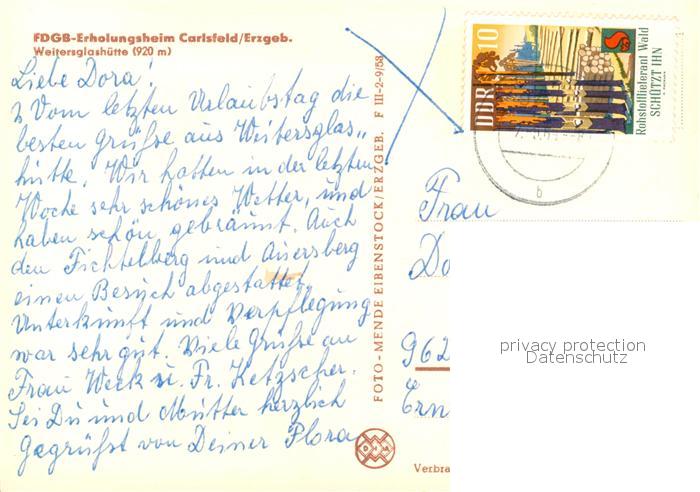 FDGB-Erholungsheim Carlsfeld/Erzgeb.
Weitersglashütte (920 m)
Liebe Dora!
Vom letzten Urlaubstag die
besten Grüße aus Weitersglas„
hütte. Wir hatten in der letzten
Woche sehr schönes Wetter, und
haben schön gebräunt. Auch
den Fichtelberg und Auersberg
einen Besuch abgestattet.
Unterkunft und Verpflegung
war sehr gut. Viele Grüße an
Frau Weck u. Fr. Ketzscher.
Sei Du und Mutter herzlich
gegrüßt von Deiner Flora
FOTO-MENDE EIBENSTOCK/ERZGEB. F III-2-9/58
DDR 10
Rohstofflieferant Wald
SCHÜTZT IHN
b
Frau
Do
962
privacy protection
Datenschutz
DHA
Verbra